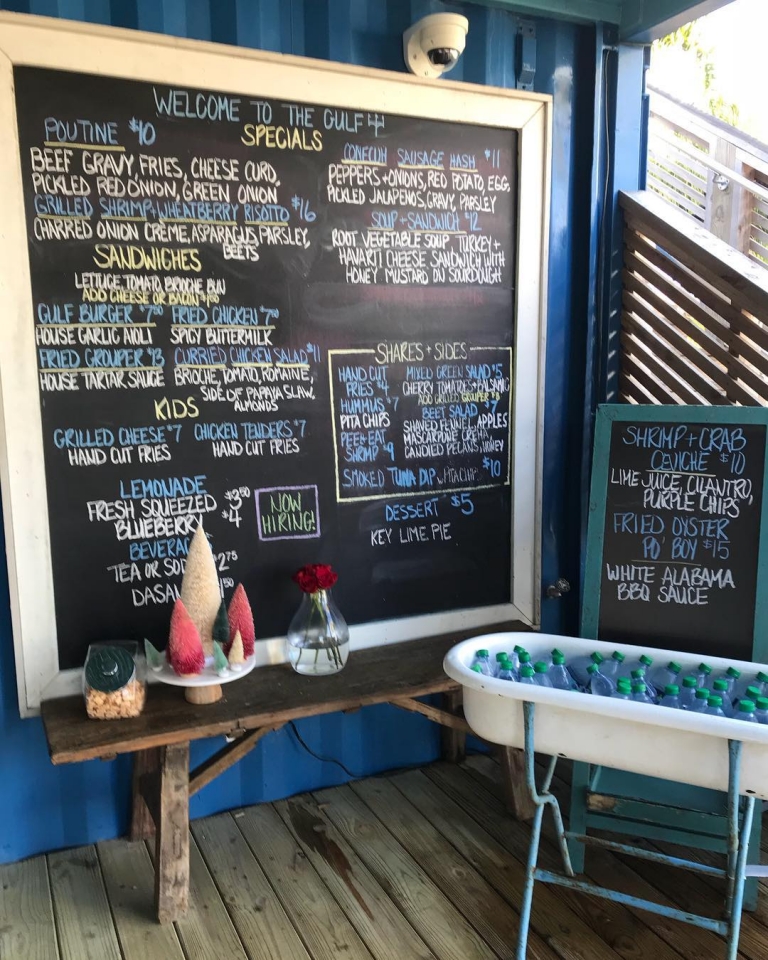 WELCOME TO THE GULF
SPECIALS
POUTINE $10
BEEF GRAVY, FRIES, CHEESE CURD,
PICKLED RED ONION, GREEN ONION
GRILLED SHRIMP + WHEATBERRY RISOTTO $16
CHARRED ONION CREME, ASPARAGUS, PARSLEY,
BEETS
CONECUH SAUSAGE HASH $11
PEPPERS + ONIONS, RED POTATO, EGG,
PICKLED JALAPENOS, GRAVY, PARSLEY
SOUP + SANDWICH $12
ROOT VEGETABLE SOUP, TURKEY +
HAVARTI CHEESE SANDWICH WITH
HONEY MUSTARD ON SOURDOUGH
SANDWICHES
LETTUCE, TOMATO, BRIOCHE BUN
ADD CHEESE OR BACON $1.50
GULF BURGER $7.00 FRIED CHICKEN $7.00
HOUSE GARLIC AIOLI SPICY BUTTERMILK
FRIED GROUPER $13 CURRIED CHICKEN SALAD $11
HOUSE TARTAR SAUCE BRIOCHE, TOMATO, ROMAINE,
SIDE OF PAPAYA SLAW,
ALMONDS
KIDS
GRILLED CHEESE $7 CHICKEN TENDERS $7
HAND CUT FRIES HAND CUT FRIES
LEMONADE
FRESH SQUEEZED $3.50
BLUEBERRY $4
TEA OR
DASAN
NOW
HIRING!
SHARES + SIDES
HAND CUT
FRIES $4
HUMMUS $7
PITA CHIPS
PEEL+EAT
SHRIMP $9
MIXED GREEN SALAD $5
CHERRY TOMATOES + BALSAMIC
ADD GRILLED GROUPER $8
BEET SALAD $7
SHAVED FENNEL, APPLES
MASCARPONE CREMA,
CANDIED PECANS, HONEY
SMOKED TUNA DIP, PITA CHIP $10
DESSERT $5
KEY LIME PIE
SHRIMP + CRAB
CEVICHE $10
LIME JUICE, CILANTRO,
PURPLE CHIPS
FRIED OYSTER
PO' BOY $15
WHITE ALABAMA
BBQ SAUCE